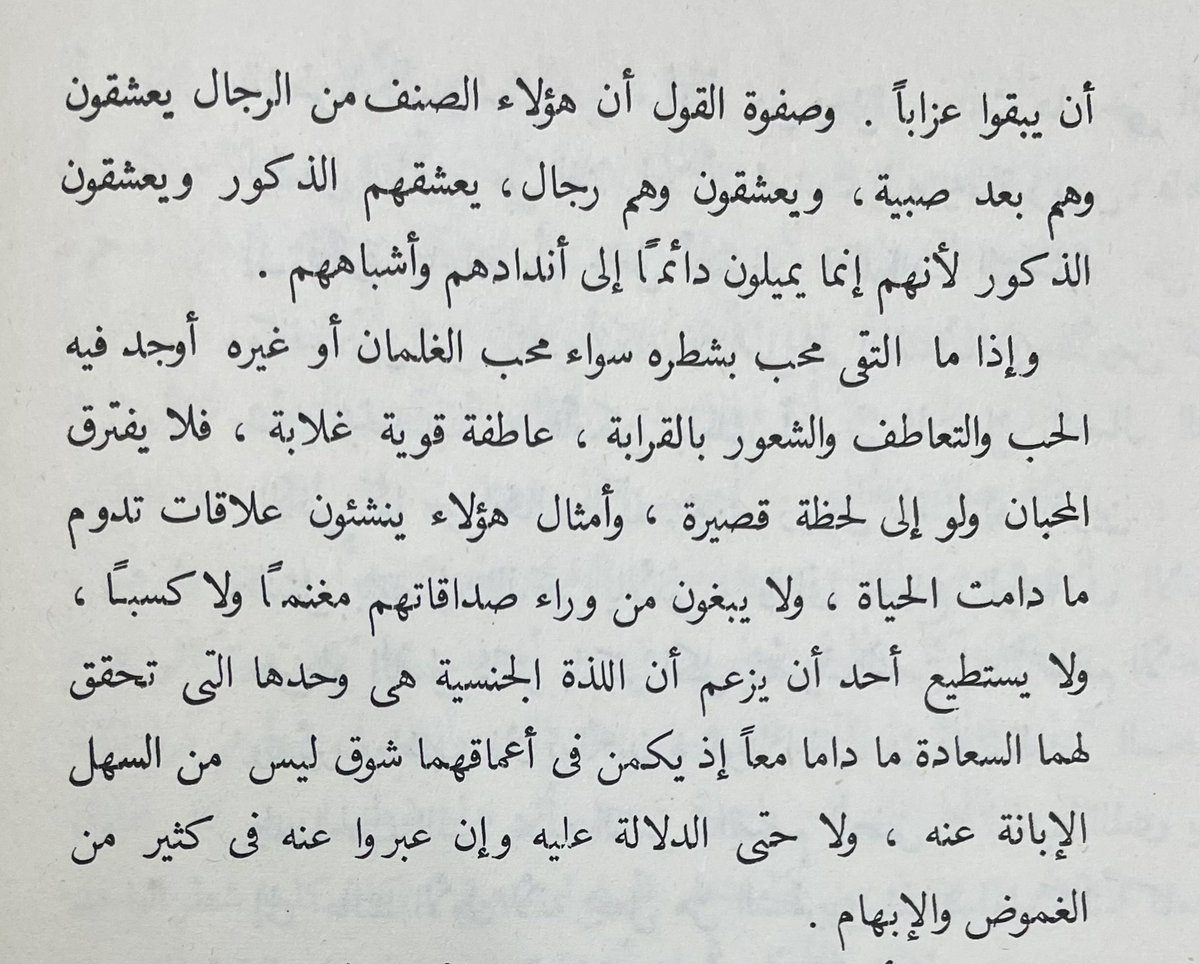 أن يبقوا عزاباً . وصفوة القول أن هؤلاء الصنف من الرجال يعشقون
وهم بعد صبية ، ويعشقون وهم رجال ، يعشقهم الذكور ويعشقون
الذكور لأنهم إنما يميلون دائمًا إلى أندادهم وأشباههم .
وإذا ما التقى محب بشطره سواء محب الغلمان أو غيره أوجد فيه
الحب والتعاطف والشعور بالقرابة ، عاطفة قوية غلابة ، فلا يفترق
المحبان ولو إلى لحظة قصيرة ، وأمثال هؤلاء ينشئون علاقات تدوم
ما دامت الحياة ، ولا يبغون من وراء صداقاتهم مغنمًا ولا كسبًا ،
ولا يستطيع أحد أن يزعم أن اللذة الجنسية هى وحدها التى تحقق
لهما السعادة ما داما معاً إذ يكمن فى أعماقهما شوق ليس من السهل
الإبانة عنه ، ولا حتى الدلالة عليه وإن عبروا عنه فى كثير من
الغموض والإبهام .